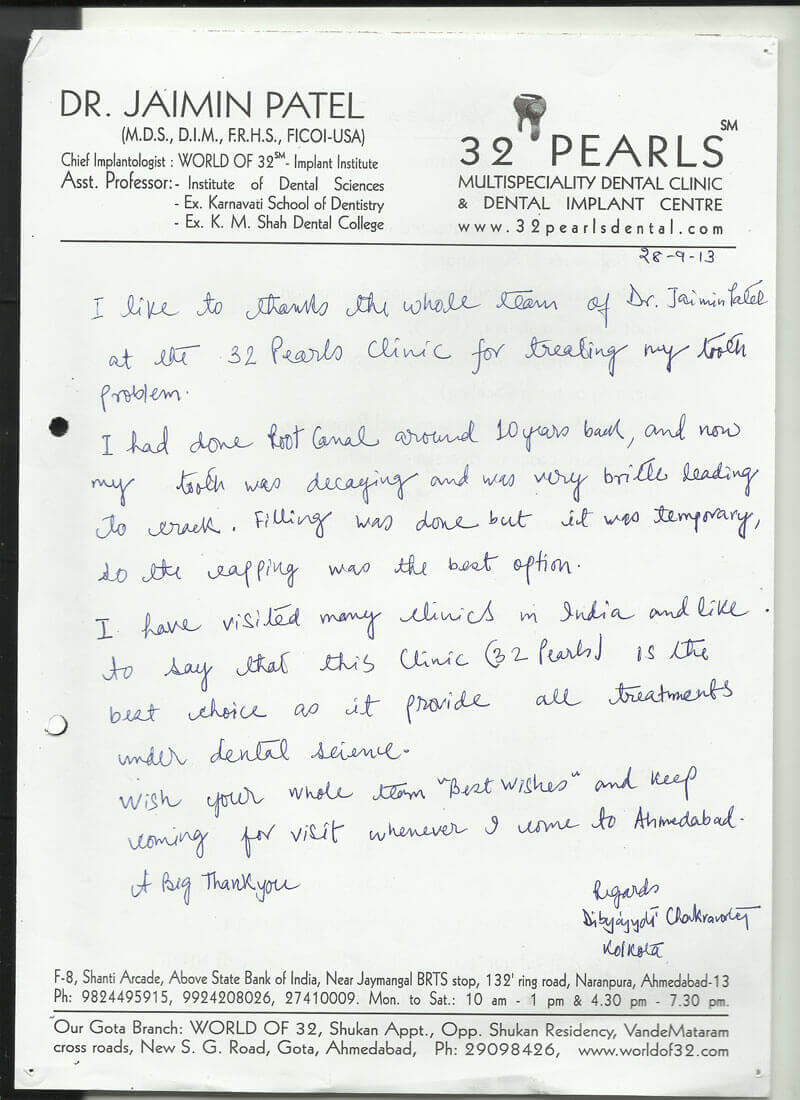 DR. JAIMIN PATEL
(M.D.S., D.I.M., F.R.H.S., FICOI-USA)
Chief Implantologist : WORLD OF 32SM- Implant Institute
Asst. Professor:- Institute of Dental Sciences
- Ex. Karnavati School of Dentistry
- Ex. K. M. Shah Dental College
32 PEARLS SM
MULTISPECIALITY DENTAL CLINIC
& DENTAL IMPLANT CENTRE
www.32pearlsdental.com
28-9-13
I like to thanks the whole team of Dr. Jaimin Patel
at the 32 Pearls Clinic for treating my tooth
problem.
I had done Root Canal around 10 years back, and now
my tooth was decaying and was very brittle leading
to crack. Filling was done but it was temporary,
so the capping was the best option.
I have visited many clinics in India and like
to say that this Clinic (32 Pearls) is the
best choice as it provide all treatments
under dental science.
Wish your whole team "Best Wishes" and keep
coming for visit whenever I come to Ahmedabad.
A Big Thankyou
Regards
Dibyajyoti Chakravorty
Kolkata
F-8, Shanti Arcade, Above State Bank of India, Near Jaymangal BRTS stop, 132' ring road, Naranpura, Ahmedabad-13
Ph: 9824495915, 9924208026, 27410009. Mon. to Sat.: 10 am - 1 pm & 4.30 pm - 7.30 pm.
Our Gota Branch: WORLD OF 32, Shukan Appt., Opp. Shukan Residency, VandeMataram
cross roads, New S. G. Road, Gota, Ahmedabad, Ph: 29098426, www.worldof32.com